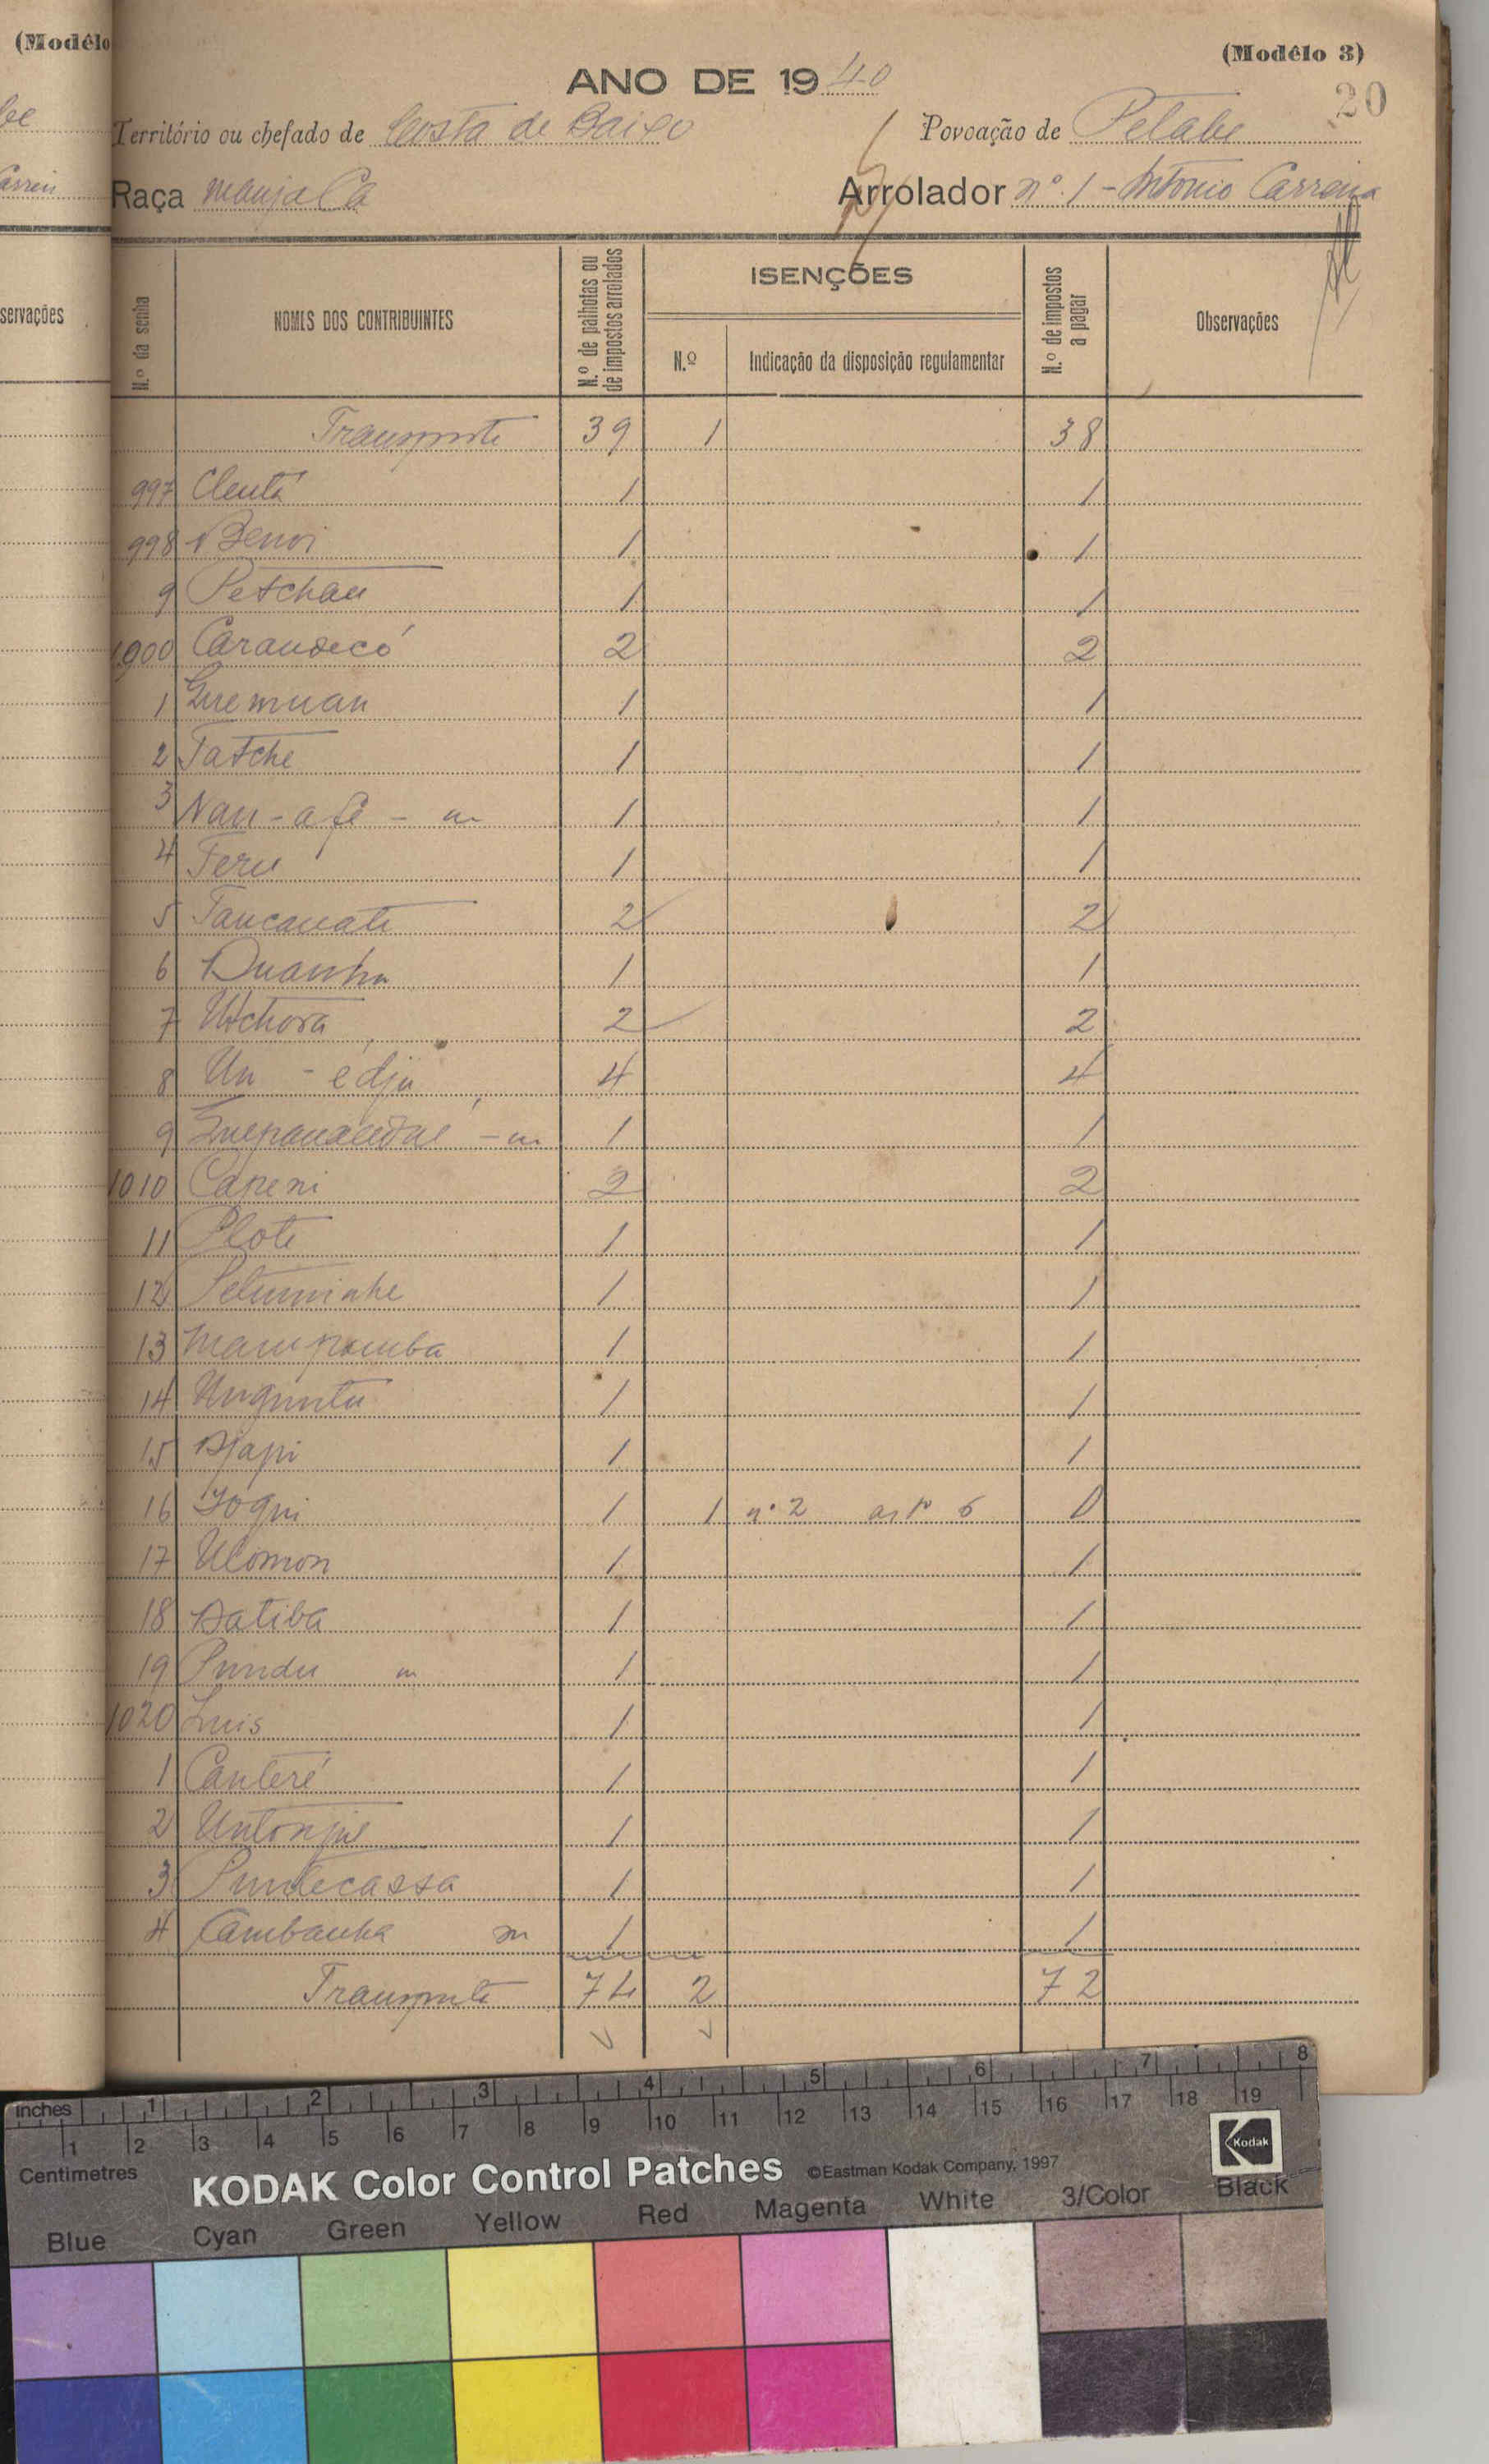 (Modêlo
(Modêlo 3)
20
ANO DE 1940
Território ou chefado de Costa de Baixo Povoação de Petabe
Raça manjaca Arrolador nº 1 - António Carreira
servações
N.º da senha NOMES DOS CONTRIBUINTES N.º de palhotas ou de impostos arrolados ISENÇÕES N.º de impostos a pagar Observações
N.º Indicação da disposição regulamentar
Transporte 39 1 38
997 Clentá 1 1
998 Benoi 1 1
9 Petchau 1 1
1000 Carandecó 2 2
1 Guemuan 1 1
2 Tatche 1 1
3 Nan-afé - m 1 1
4 Feru 1 1
5 Tancanate 2 2
6 1 1
7 Utchora 2 2
8 Un - édju 4 4
9 - m 1 1
1010 Capeni 2 2
11 Plote 1 1
12 Petuminhe 1 1
13 Mampamba 1 1
14 Unguntu 1 1
15 Djapi 1 1
16 Joqui 1 1 nº 2 artº 6 0
17 Ucomon 1 1
18 Datiba 1 1
19 Pundu m 1 1
1020 Luis 1 1
1 Canteré 1 1
2 Untonjue 1 1
3 Puntecassa 1 1
4 Cambanha m 1 1
Transporte 74 2 72
inches 1 2 3 4 5 6 7 8
1 2 3 4 5 6 7 8 9 10 11 12 13 14 15 16 17 18 19
Centimetres
KODAK Color Control Patches ©Eastman Kodak Company, 1997 Kodak
Blue Cyan Green Yellow Red Magenta White 3/Color Black